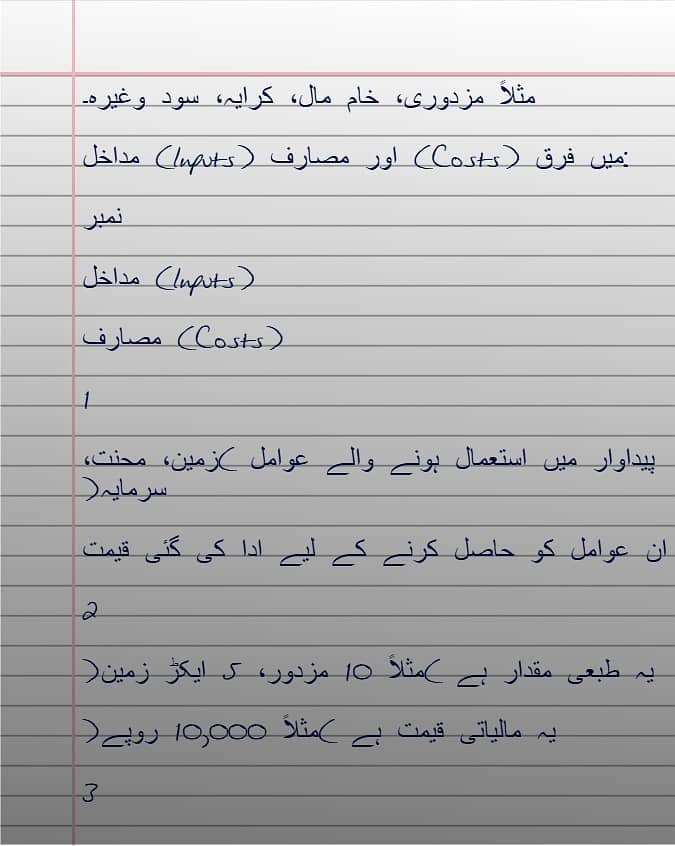 مثلاً مزدوری، خام مال، کرایہ، سود وغیرہ۔
مداخل (Inputs) اور مصارف (Costs) میں فرق:
نمبر
مداخل (Inputs)
مصارف (Costs)
1
پیداوار میں استعمال ہونے والے عوامل (زمین، محنت،
سرمایہ)
ان عوامل کو حاصل کرنے کے لیے ادا کی گئی قیمت
2
یہ طبعی مقدار ہے (مثلاً 10 مزدور، 5 ایکڑ زمین)
یہ مالیاتی قیمت ہے (مثلاً 10,000 روپے)
3